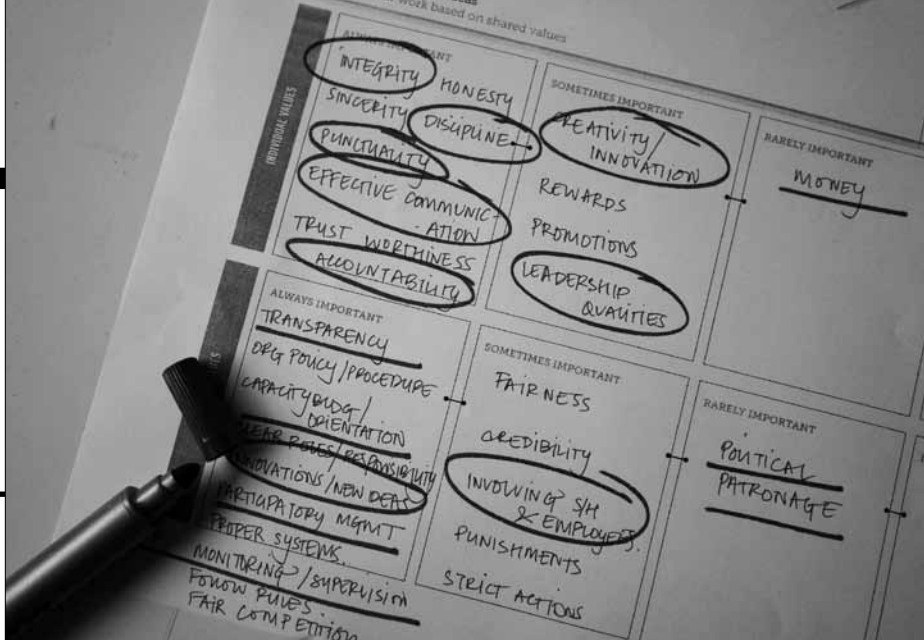 work based on shared values
INDIVIDUAL VALUES
ALWAYS IMPORTANT
INTEGRITY
HONESTY
SINCERITY
DISCIPLINE
PUNCTUALITY
EFFECTIVE COMMUNIC-
ATION
TRUST WORTHINESS
ACCOUNTABILITY
SOMETIMES IMPORTANT
CREATIVITY/
INNOVATIION
REWARDS
PROMOTIONS
LEADERSHIP
QUALITIES
RARELY IMPORTANT
MONEY
ALWAYS IMPORTANT
TRANSPARENCY
ORG POLICY/PROCEDURE
CAPACITYBLDG/
ORIENTATION
CLEAR ROLES/RESPONSIBILITY
INNOVATIONS/NEW IDEAS
PARTICIPATORY MGMT
PROPER SYSTEMS.
MONITORING/SUPERVISION
FOLLOW RULES.
FAIR COMPETITION
SOMETIMES IMPORTANT
FAIRNESS
CREDIBILITY
INVOLVING S/H
& EMPLOYEES.
PUNISHMENTS
STRICT ACTIONS
RARELY IMPORTANT
POLITICAL
PATRONAGE